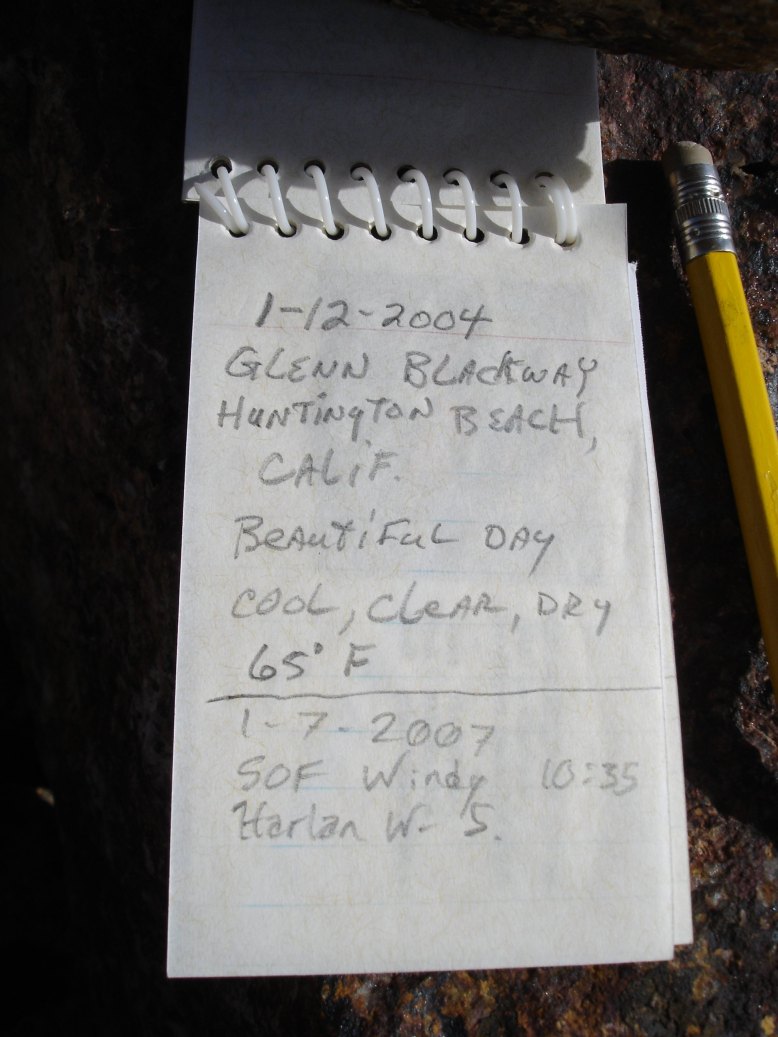 1-12-2004
GLENN BLACKWAY
HUNTINGTON BEACH,
CALIF.
BEAUTIFUL DAY
COOL, CLEAR, DRY
65° F
1-7-2007
50F Windy 10:35
Harlan W- S.